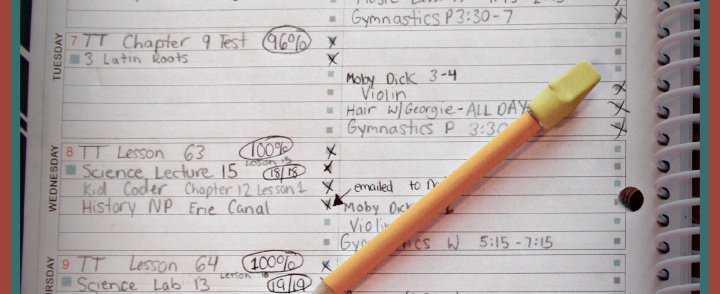 Gymnastics P 3:30-7
TUESDAY
7 TT Chapter 9 Test 96% X
3 Latin Roots X
Moby Dick 3-4
Violin
Hair w/Georgie - ALL DAY
Gymnastics P 3:30
WEDNESDAY
8 TT Lesson 63 100% X
Lesson 15
Science Lecture 15 18/18 X
Kid Coder Chapter 12 Lesson 1 X
emailed to
History NP Erie Canal X
Moby Dick
Violin
Gymnastics W 5:15-7:15
9 TT Lesson 64 100% X
Lesson
Science Lab 13 19/19 X